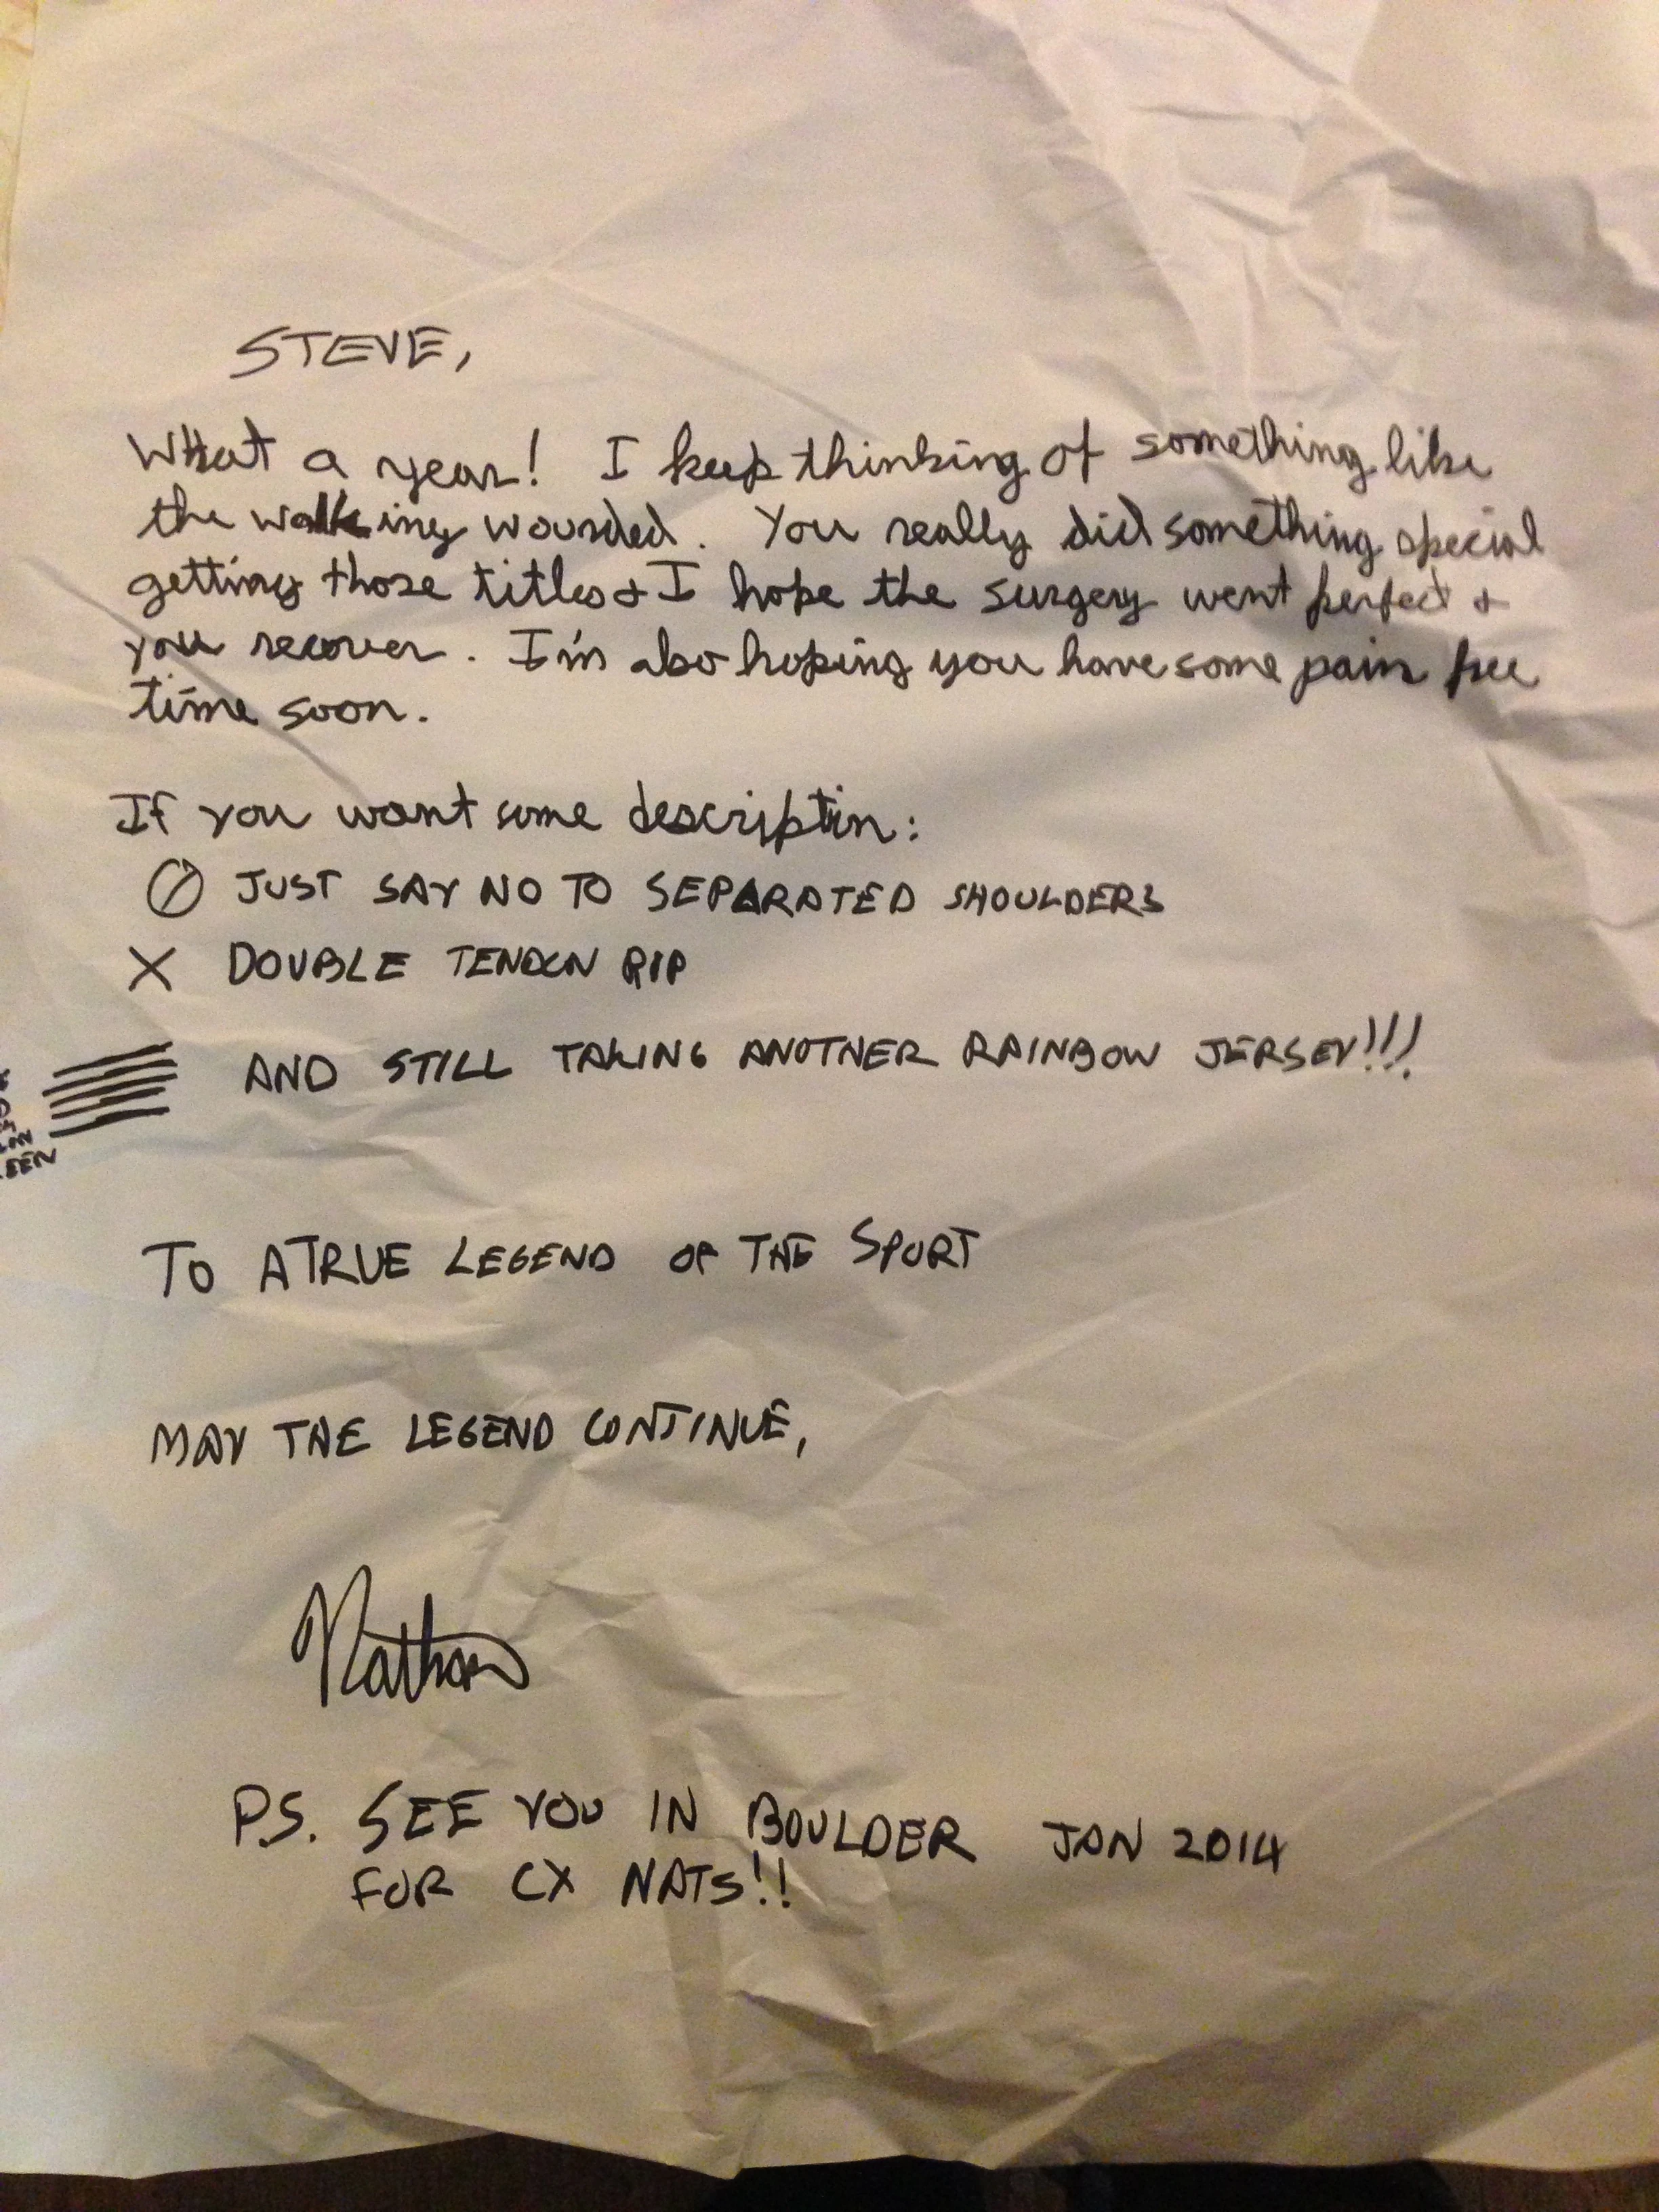 STEVE,
What a year! I keep thinking of something like
the walking wounded. You really did something special
getting those titles & I hope the surgery went perfect &
you recover. I'm also hoping you have some pain free
time soon.
If you want some descriptin:
JUST SAY NO TO SEPARATED SHOULDERS
X DOUBLE TENDON RIP
AND STILL TAKING ANOTHER RAINBOW JERSEY!!!
TO A TRUE LEGEND OF THE SPORT
MAY THE LEGEND CONTINUE,
Nathan
P.S. SEE YOU IN BOULDER JAN 2014
FOR CX NATS!!